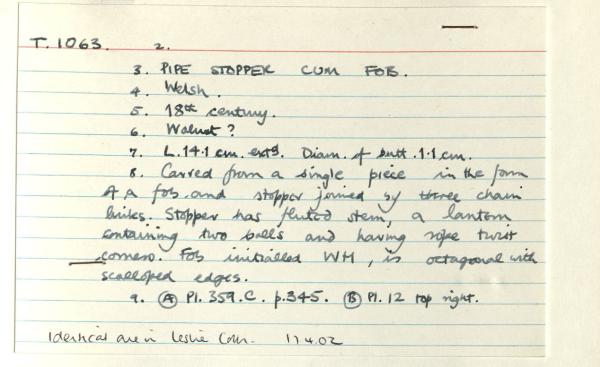 T. 1063. 2.
3. PIPE STOPPER CUM FOB.
4. Welsh.
5. 18th century.
6. Walnut?
7. L. 14.1 cm. extd. Diam. of butt. 1.1 cm.
8. Carved from a single piece in the form
of a fob and stopper joined by three chain
links. Stopper has fluted stem, a lantern
containing two balls and having rope twist
corners. Fob initialled WH, is octagonal with
scalloped edges.
9. Ⓐ Pl. 359.C. p.345. Ⓑ Pl. 12 top right.
Identical one in Leslie Coln. 17.4.02